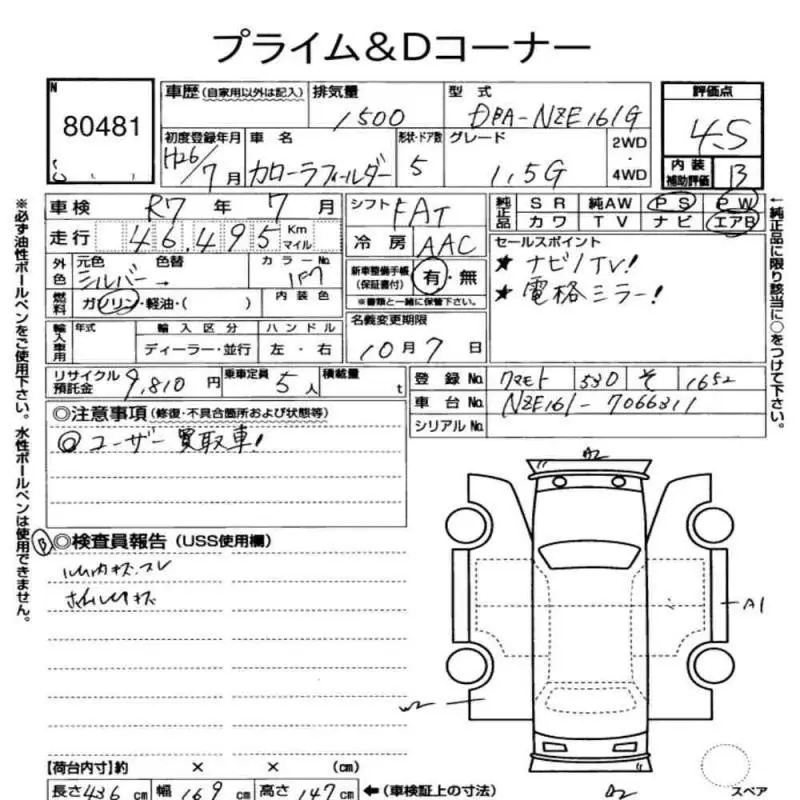 プライム&Dコーナー
N
80481
車歴 (自家用以外は記入)
排気量
1500
型 式
DBA-NZE161G
評価点
4.5
初度登録年月
H26/7月
車 名
カローラフィールダー
形状・ドア数
5
グレード
1.5G
2WD
・
4WD
内 装
補助評価
B
車 検 R7 年 7 月
走 行 46,495 Km マイル
シフト FAT
冷 房 AAC
純正品
SR 純AW PS PW
カワ TV ナビ エアB
セールスポイント
★ ナビ/TV!
★ 電格ミラー!
外色
元色
シルバー→
色替
カラーNo.
1F7
新車整備手帳
(保証書付)
有・無
※書類と一緒に保管下さい。
燃料 ガソリン・軽油・( )
内 装 色
輸入車用
年式
輸 入 区 分
ディーラー・並行
ハ ン ド ル
左 ・ 右
名義変更期限
10 月 7 日
リサイクル
預託金
9,810 円
乗車定員 5 人
積載量 t
登 録 No. クマモト 530 そ 1652
車 台 No. NZE161-7066311
シリアルNo.
◎注意事項 (修復・不具合箇所および状態等)
◎ ユーザー買取車!
Ⓑ ◎検査員報告 (USS使用欄)
A2
A1
W2
A2
【荷台内寸】約 × × (cm)
長さ 436 cm 幅 169 cm 高さ 147 cm ←(車検証上の寸法)
スペア
※必ず油性ボールペンをご使用下さい。水性ボールペンは使用できません。
←純正品に限り該当に○をつけて下さい。